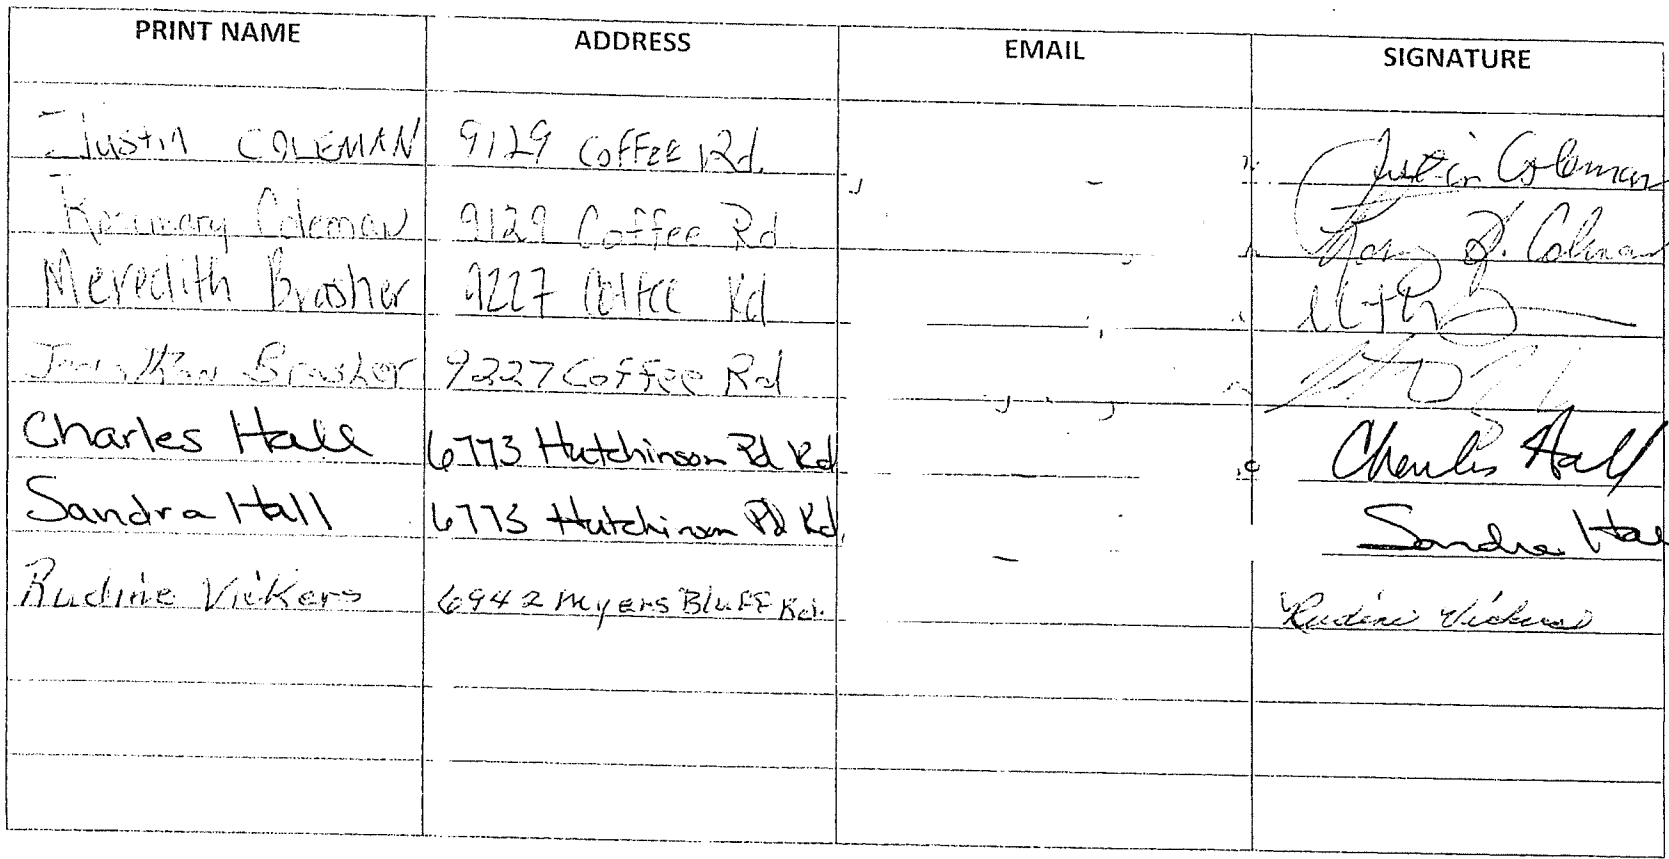 PRINT NAME ADDRESS EMAIL SIGNATURE
Justin COLEMAN 9129 Coffee Rd. Justin Coleman
Rosemary Coleman 9129 Coffee Rd Coleman
Meredith Brasher 9227 Coffee Rd
Jonathan Brasher 9227 Coffee Rd
Charles Hall 6773 Hutchinson Pd Rd Charles Hall
Sandra Hall 6773 Hutchinson Pd Rd. Sandra Hal
Rudine Vickers 6942 Myers Bluff Rd. Rudine Vickers